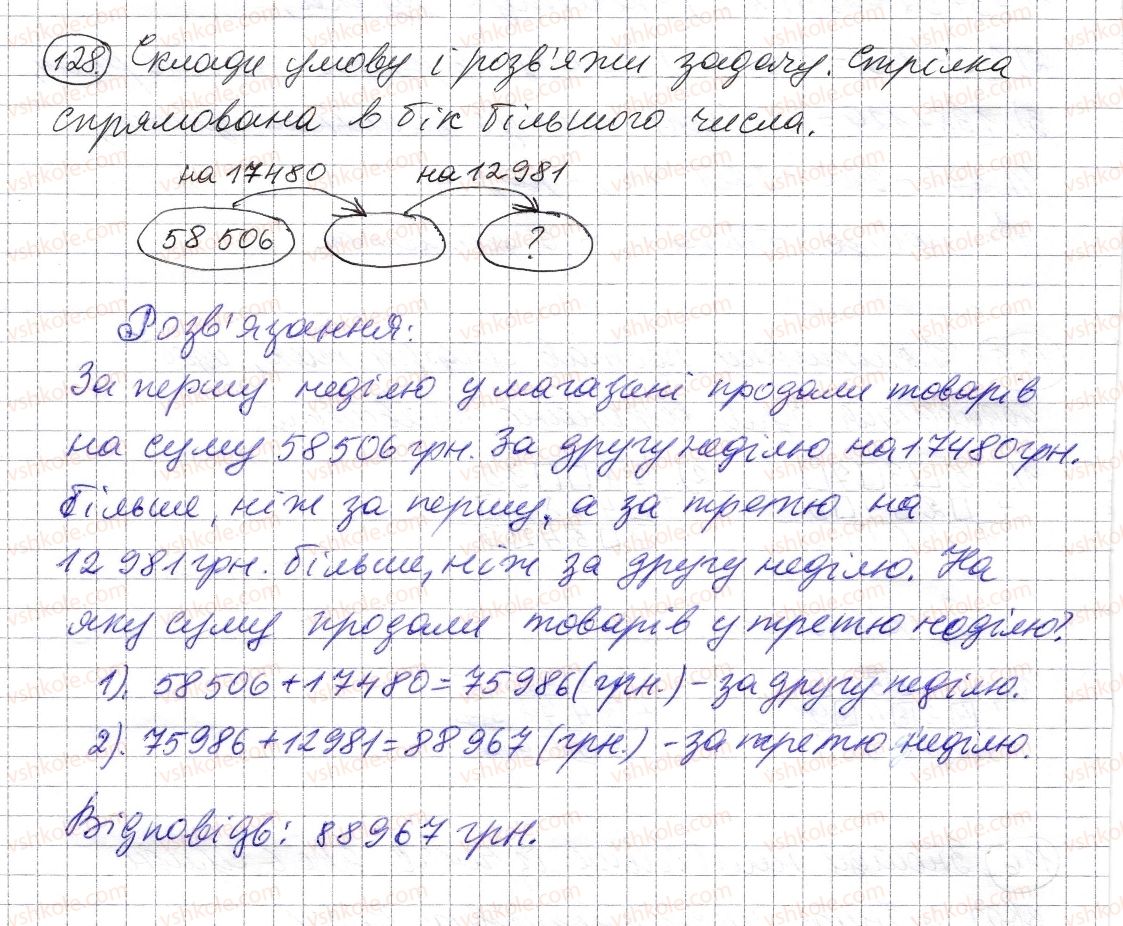 128. Склади умову і розв'яжи задачу. Стрілка
спрямована в бік більшого числа.
на 17480 на 12981
58 506 ?
Розв'язання:
За першу неділю у магазині продали товарів
на суму 58506 грн. За другу неділю на 17480 грн.
більше, ніж за першу, а за третю на
12 981 грн. більше, ніж за другу неділю. На
яку суму продали товарів у третю неділю?
1). 58506+17480=75986 (грн.) - за другу неділю.
2). 75986+12981=88967 (грн.) - за третю неділю.
Відповідь: 88967 грн.